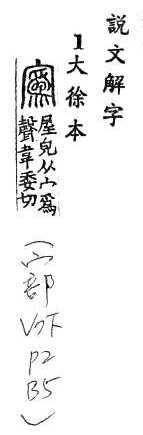 説文解字
1大徐本
寪屋皃从宀爲
聲韋委切
(宀部 V7下 P2 B5)